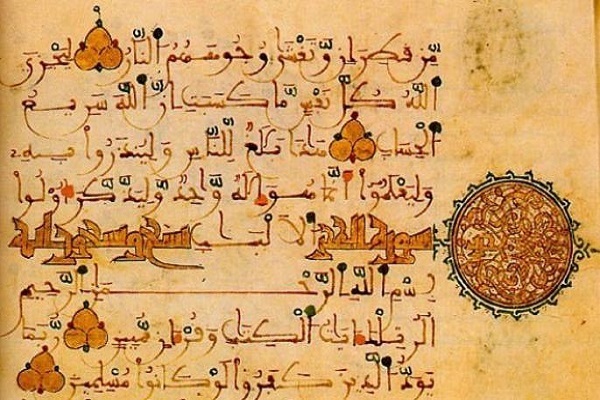 مِّن قَطِرَانٍ وَّتَغْشَىٰ وُجُوهَهُمُ النَّارُ لِيَجْزِيَ
اللَّهُ كُلَّ نَفْسٍ مَّا كَسَبَتْ إِنَّ اللَّهَ سَرِيعُ
الْحِسَابِ هَٰذَا بَلَٰغٌ لِّلنَّاسِ وَلِيُنذَرُوا بِهِ
وَلِيَعْلَمُوا أَنَّمَا هُوَ إِلَٰهٌ وَّاحِدٌ وَّلِيَذَّكَّرَ أُوْلُوا
سورة الحجر الْأَلْبَٰبِ تسع وتسعون اية
بِسْمِ اللَّهِ الرَّحْمَٰنِ الرَّحِيمِ
الٓر تِلْكَ ءَايَٰتُ الْكِتَٰبِ وَقُرْءَانٍ مُّبِينٍ رُّبَمَا
يَوَدُّ الَّذِينَ كَفَرُوا لَوْ كَانُوا مُسْلِمِينَ